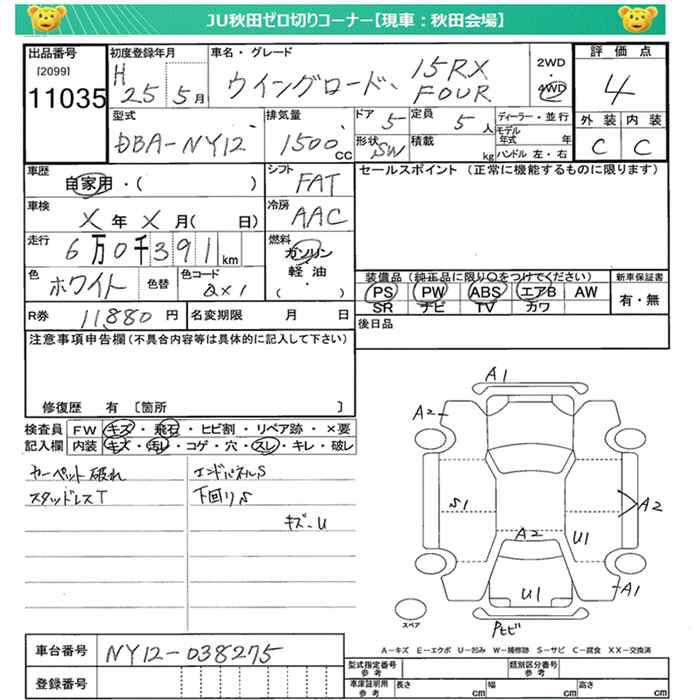 JU秋田ゼロ切りコーナー【現車:秋田会場】
出品番号 初度登録年月 車名・グレード 2WD 評価点
[2099] H 15RX 4WD 4
11035 25 5月 ウイングロード、 FOUR 外装 内装
型式 排気量 ドア 定員 ディーラー・並行 C C
DBA-NY12 1500cc 5 5人 モデル年式 年
形状 SW 積載 kg ハンドル 左・右
車歴 シフト セールスポイント (正常に機能するものに限ります)
自家用・( ) FAT
車検 冷房
X年X月( 日) AAC
走行 燃料
6万0千391km ガソリン・軽油・( )
色 色替 色コード 装備品(純正品に限り〇をつけてください) 新車保証書
ホワイト QX1 PS PW ABS エアB AW 有・無
SR ナビ TV カワ
R券 11,880円 名変期限 月 日 後日品
注意事項申告欄(不具合内容等は具体的に記入して下さい)
修復歴 有 〔箇所 〕
検査員 FW キズ・飛石・ヒビ割・リペア跡・×要
記入欄 内装 キズ・汚レ・コゲ・穴・スレ・キレ・破レ
カーペット破れ エンドパネルS
スタッドレスT 下回りS
キズ-U
A1
A2
S1 A2
A2 U1
U1 A1
スペア Rヒビ
A-キズ E-エクボ U-凹み W-補修跡 S-サビ C-腐食 XX-交換済
車台番号 NY12-038275
登録番号
型式指定番号 参考 類別区分番号 参考
車庫証明用 参考 長さ cm 幅 cm 高さ cm